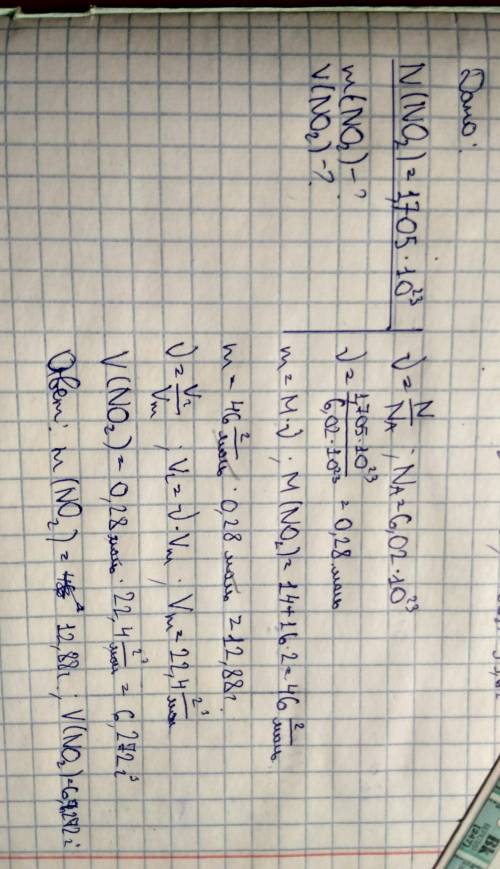 Дано:
N(NO₂) = 1,705 · 10²³
m(NO₂) - ?
V(NO₂) - ?
ν = N/NA ; NA = 6,02 · 10²³
ν = 1,705 · 10²³ / 6,02 · 10²³ = 0,28 моль
m = M · ν ; M(NO₂) = 14 + 16 · 2 = 46 г/моль
m = 46 г/моль · 0,28 моль = 12,88г.
ν = V/Vm ; V = ν · Vm ; Vm = 22,4 г³/мол
V(NO₂) = 0,28 моль · 22,4 г³/моль = 6,272 г³
Ответ: m(NO₂) = 12,88г ; V(NO₂) = 6,272 г